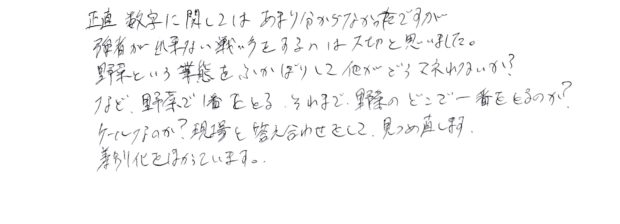 正直 数字に関しては あまり分からなかったですが
強者が出来ない戦い方をするのは大切と思いました。
野菜という業態をふかぼりして他がどうマネれないか?
など、野菜で1番をとる、それまで、野菜のどこで一番をとるのか?
ケールなのか?現場と答え合わせをして、見つめ直します。
差別化をはかっています。